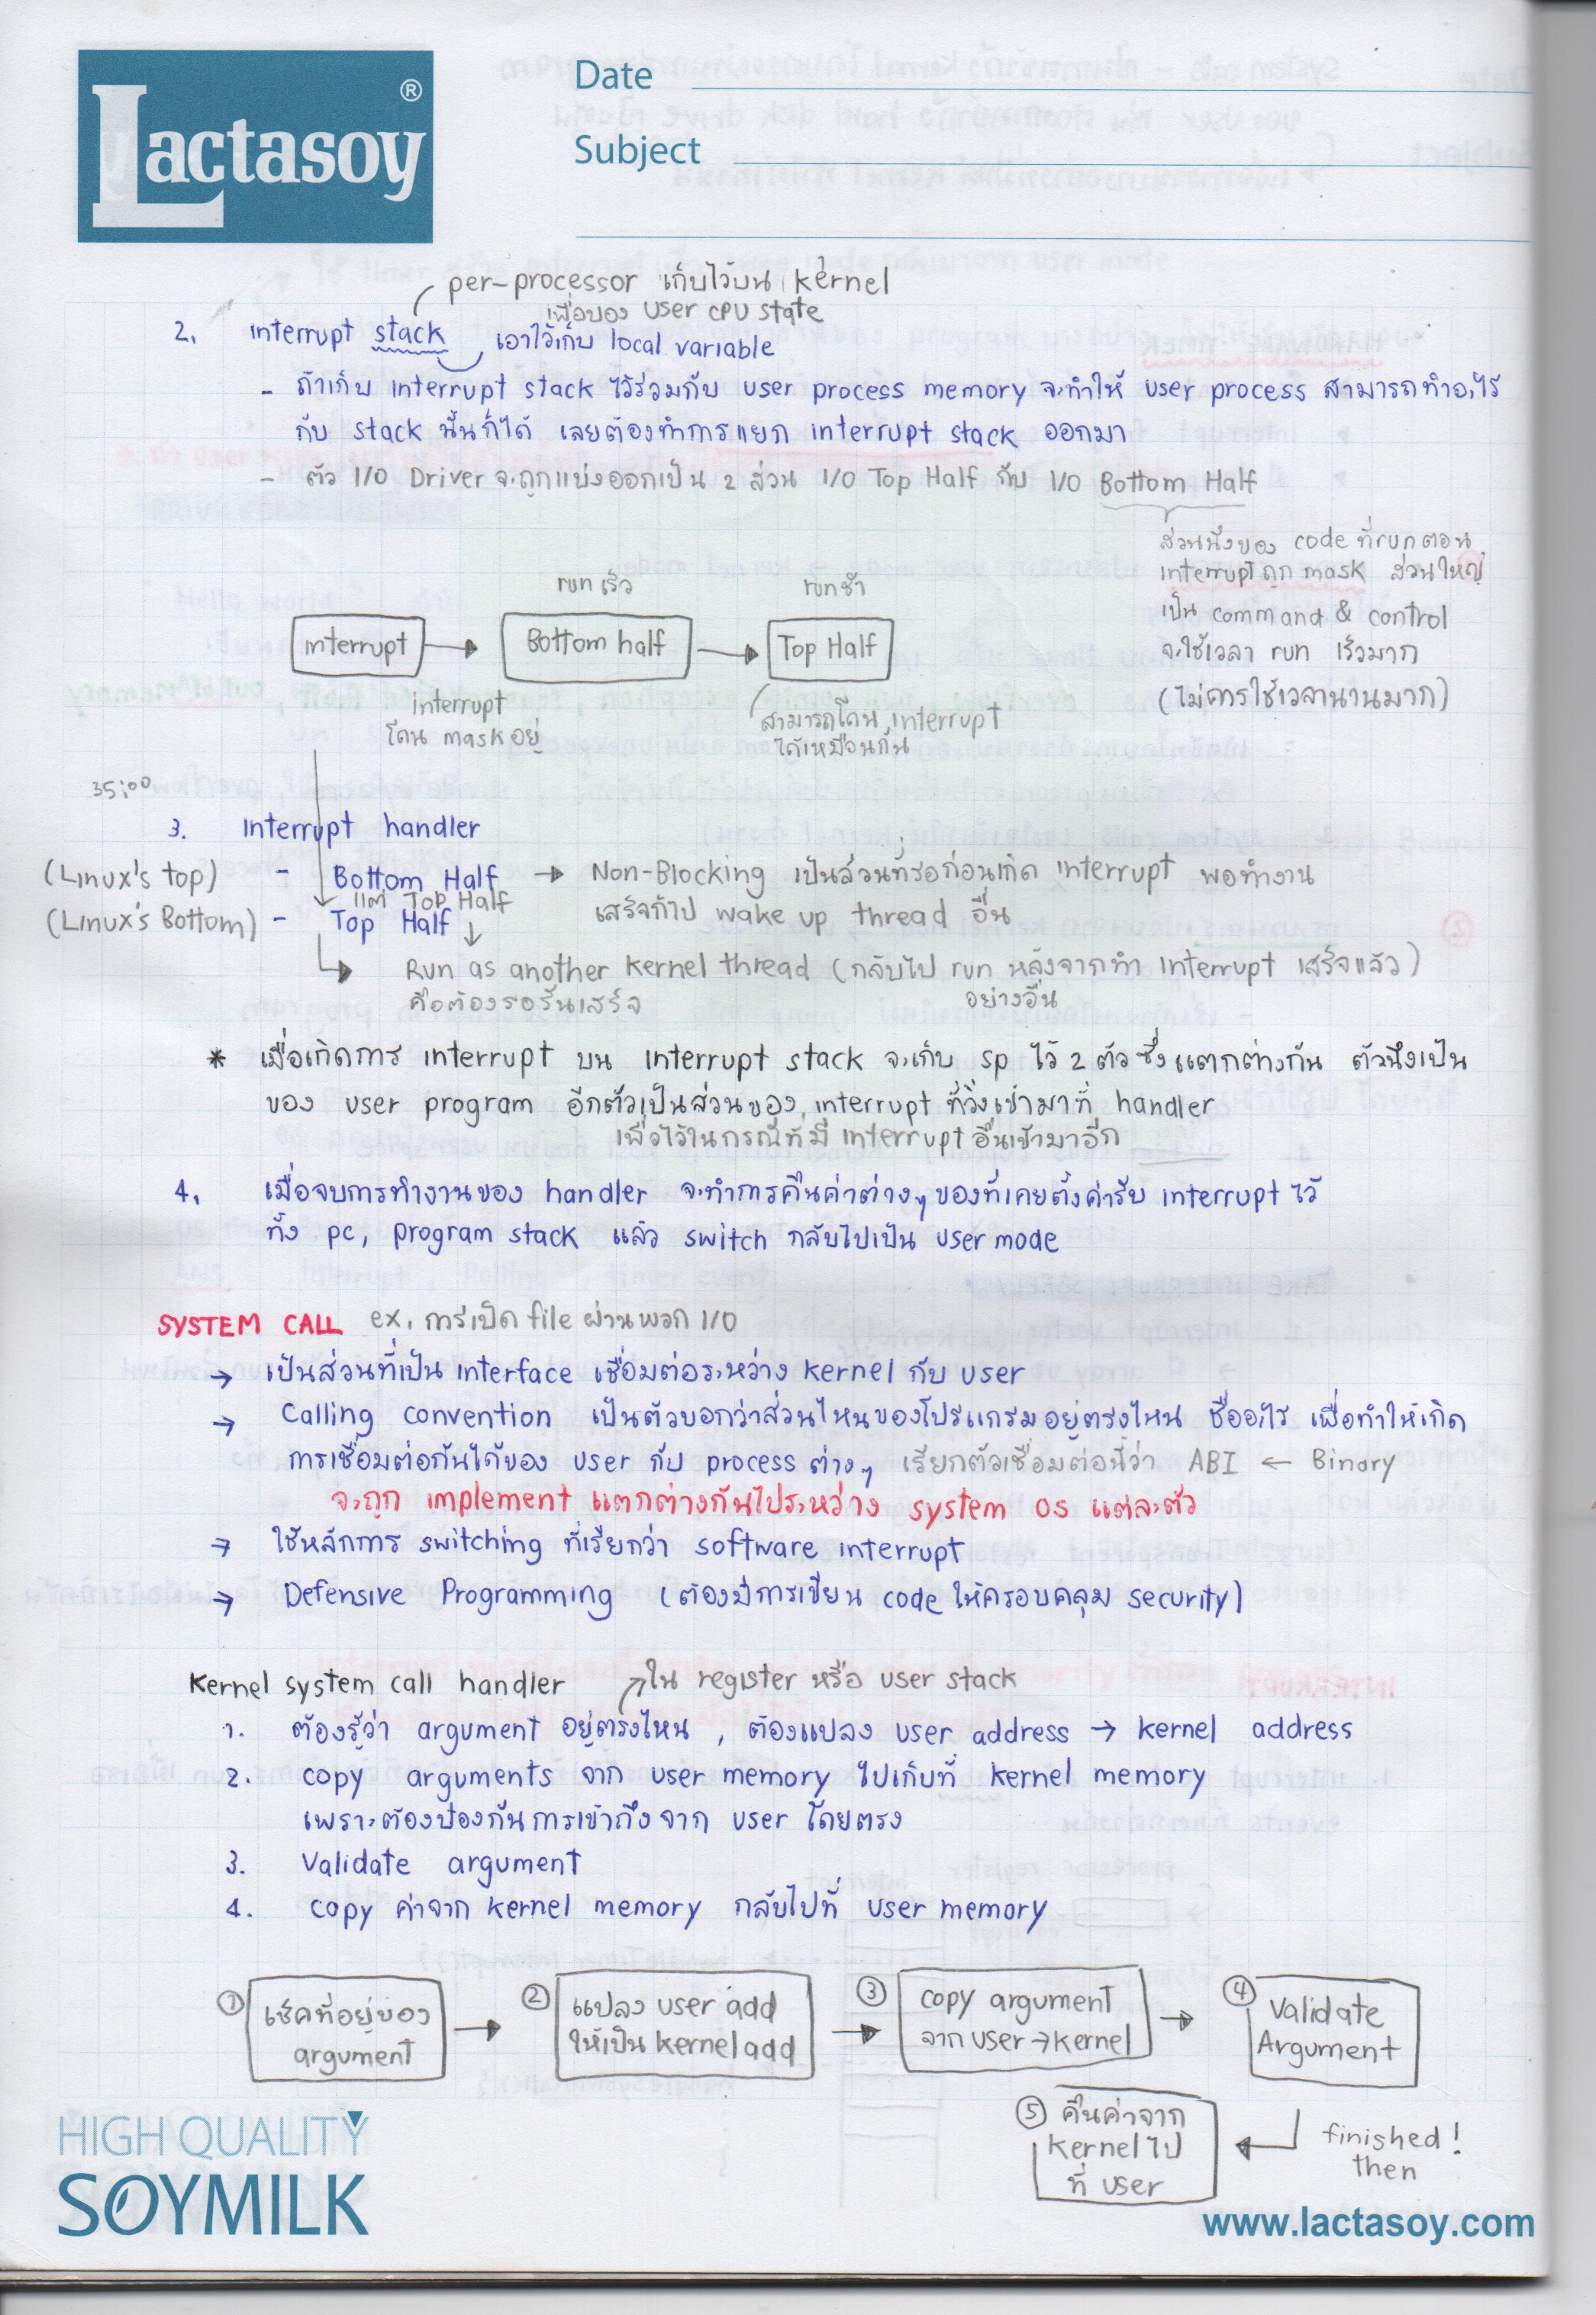 Lactasoy ®
Date
Subject
per-processor เก็บไว้บน kernel
เพื่อของ user cpu state
2. Interrupt stack เอาไว้เก็บ local variable
- ถ้าเก็บ interrupt stack ไว้ร่วมกับ user process memory จะทำให้ user process สามารถทำอะไร
กับ stack นั้นก็ได้ เลยต้องทำการแยก interrupt stack ออกมา
- ตัว I/O Driver จะถูกแบ่งออกเป็น 2 ส่วน I/O Top Half กับ I/O Bottom Half
ส่วนนึงของ code ที่ run ตอน
interrupt ถูก mask ส่วนใหญ่
เป็น command & control
จะใช้เวลา run เร็วมาก
(ไม่ควรใช้เวลานานมาก)
run เร็ว
run ช้า
interrupt
Bottom half
Top Half
interrupt
โดน mask อยู่
สามารถโดน interrupt
ได้เหมือนกัน
35:00
3. Interrupt handler
(Linux's top) - Bottom Half → Non-Blocking เป็นส่วนที่รอก่อนเกิด interrupt พอทำงาน
เสร็จก็ไป wake up thread อื่น
แต่ Top Half
(Linux's Bottom) - Top Half
Run as another kernel thread (กลับไป run หลังจากทำ interrupt เสร็จแล้ว)
คือต้องรอรันเสร็จ
อย่างอื่น
* เมื่อเกิดการ interrupt บน interrupt stack จะเก็บ sp ไว้ 2 ตัวซึ่งแตกต่างกัน ตัวนึงเป็น
ของ user program อีกตัวเป็นส่วนของ interrupt ที่วิ่งเข้ามาที่ handler
เพื่อไว้ในกรณีที่มี interrupt อื่นเข้ามาอีก
4. เมื่อจบการทำงานของ handler จะทำการคืนค่าต่างๆของที่เคยตั้งค่ารับ interrupt ไว้
ทั้ง pc, program stack แล้ว switch กลับไปเป็น user mode
SYSTEM CALL ex. การเปิด file ผ่านพวก I/O
→ เป็นส่วนที่เป็น interface เชื่อมต่อระหว่าง kernel กับ user
→ Calling convention เป็นตัวบอกว่าส่วนไหนของโปรแกรมอยู่ตรงไหน ชื่ออะไร เพื่อทำให้เกิด
การเชื่อมต่อกันได้ของ user กับ process ต่างๆ เรียกตัวเชื่อมต่อนี้ว่า ABI ← Binary
จะถูก implement แตกต่างกันไประหว่าง system os แต่ละตัว
→ ใช้หลักการ switching ที่เรียกว่า software interrupt
→ Defensive Programming (ต้องมีการเขียน code ให้ครอบคลุม security)
Kernel system call handler ใน register หรือ user stack
1. ต้องรู้ว่า argument อยู่ตรงไหน , ต้องแปลง user address → kernel address
2. copy arguments จาก user memory ไปเก็บที่ kernel memory
เพราะต้องป้องกันการเข้าถึงจาก user โดยตรง
3. Validate argument
4. copy ค่าจาก kernel memory กลับไปที่ user memory
① เช็คที่อยู่ของ
argument
② แปลง user add
ให้เป็น kernel add
③ copy argument
จาก user → kernel
④ Validate
Argument
⑤ คืนค่าจาก
kernel ไป
ที่ user
finished!
then
HIGH QUALITY
SOYMILK
www.lactasoy.com